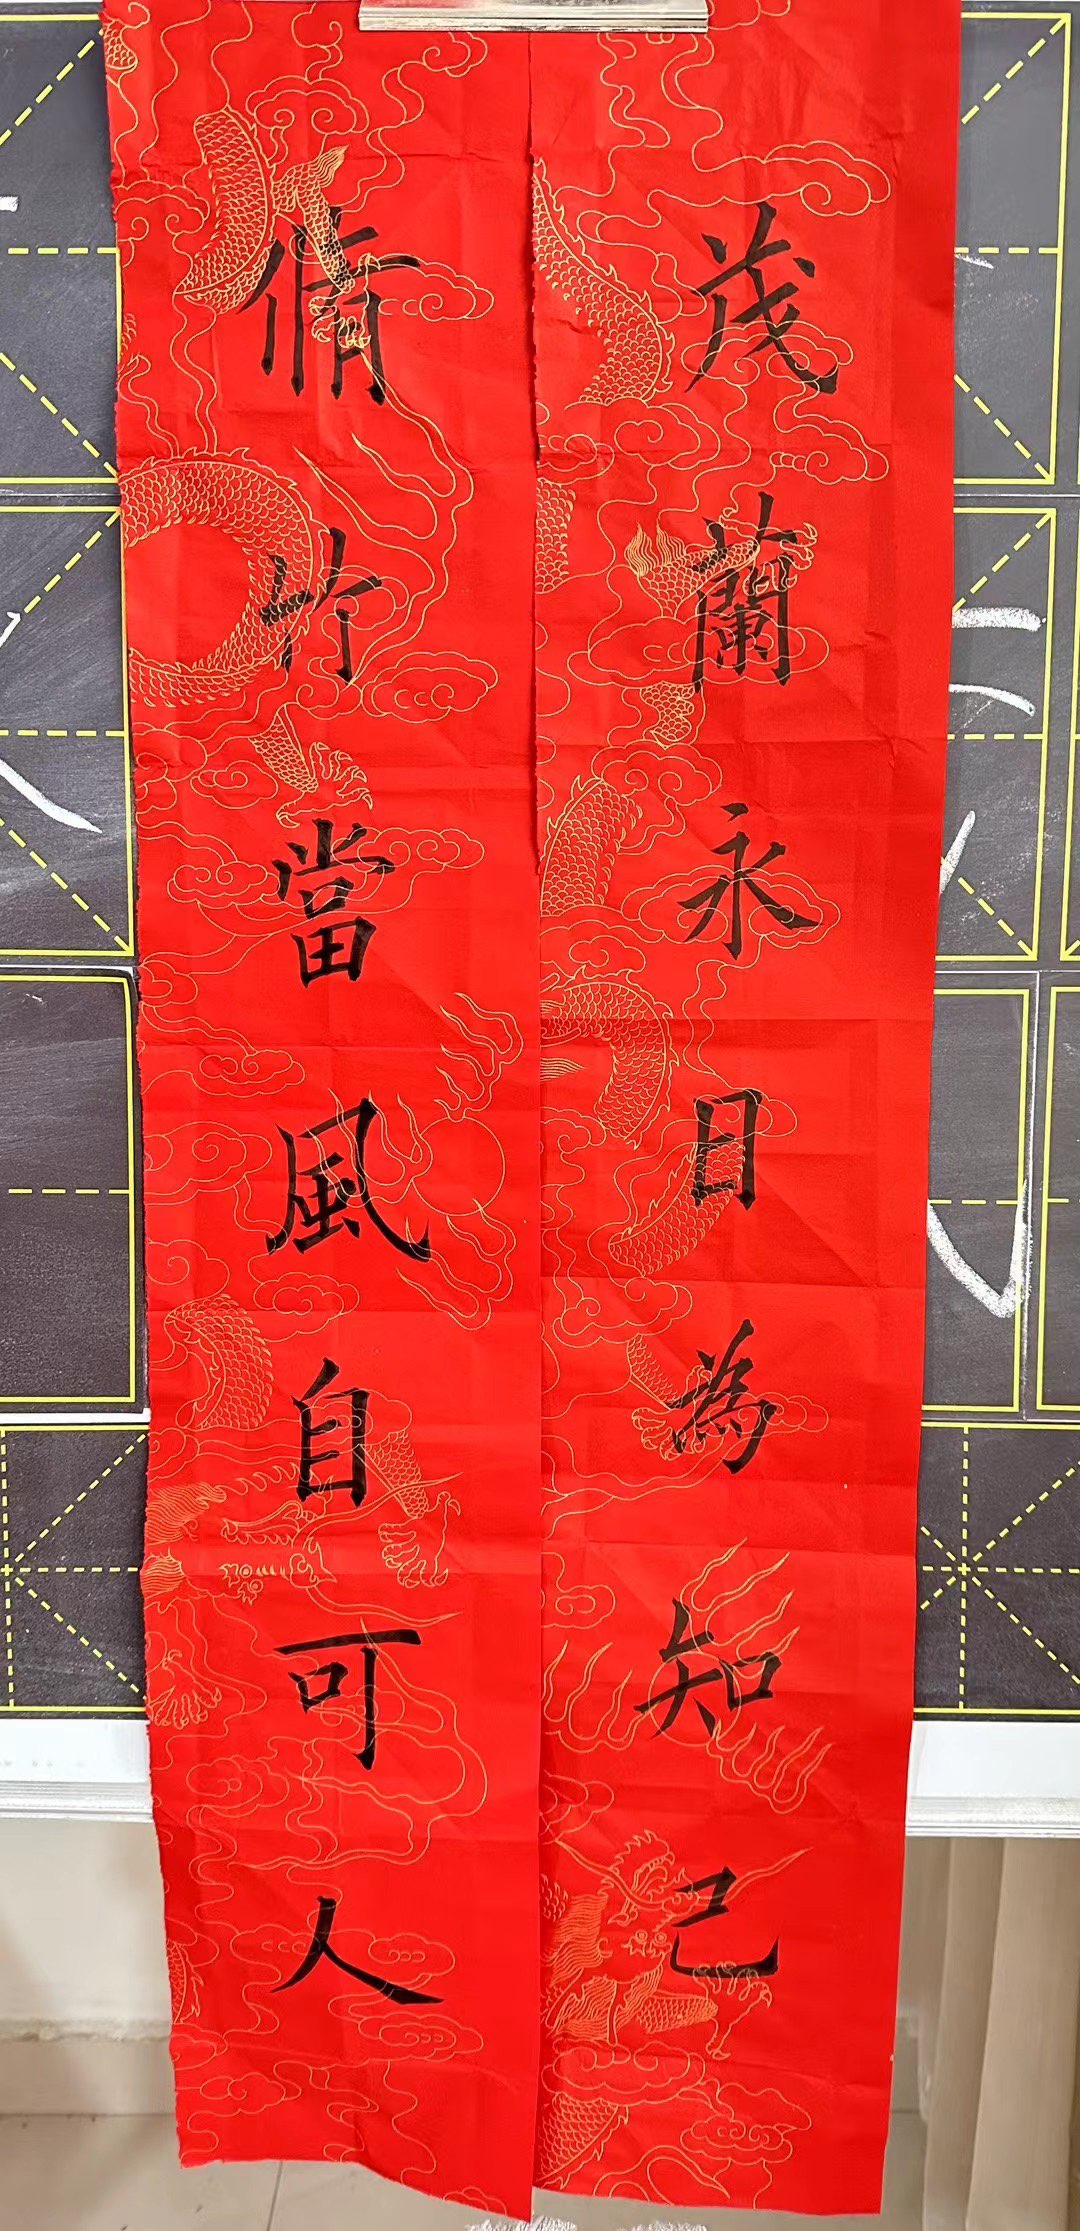 茂蘭永日為知己
脩竹當風自可人